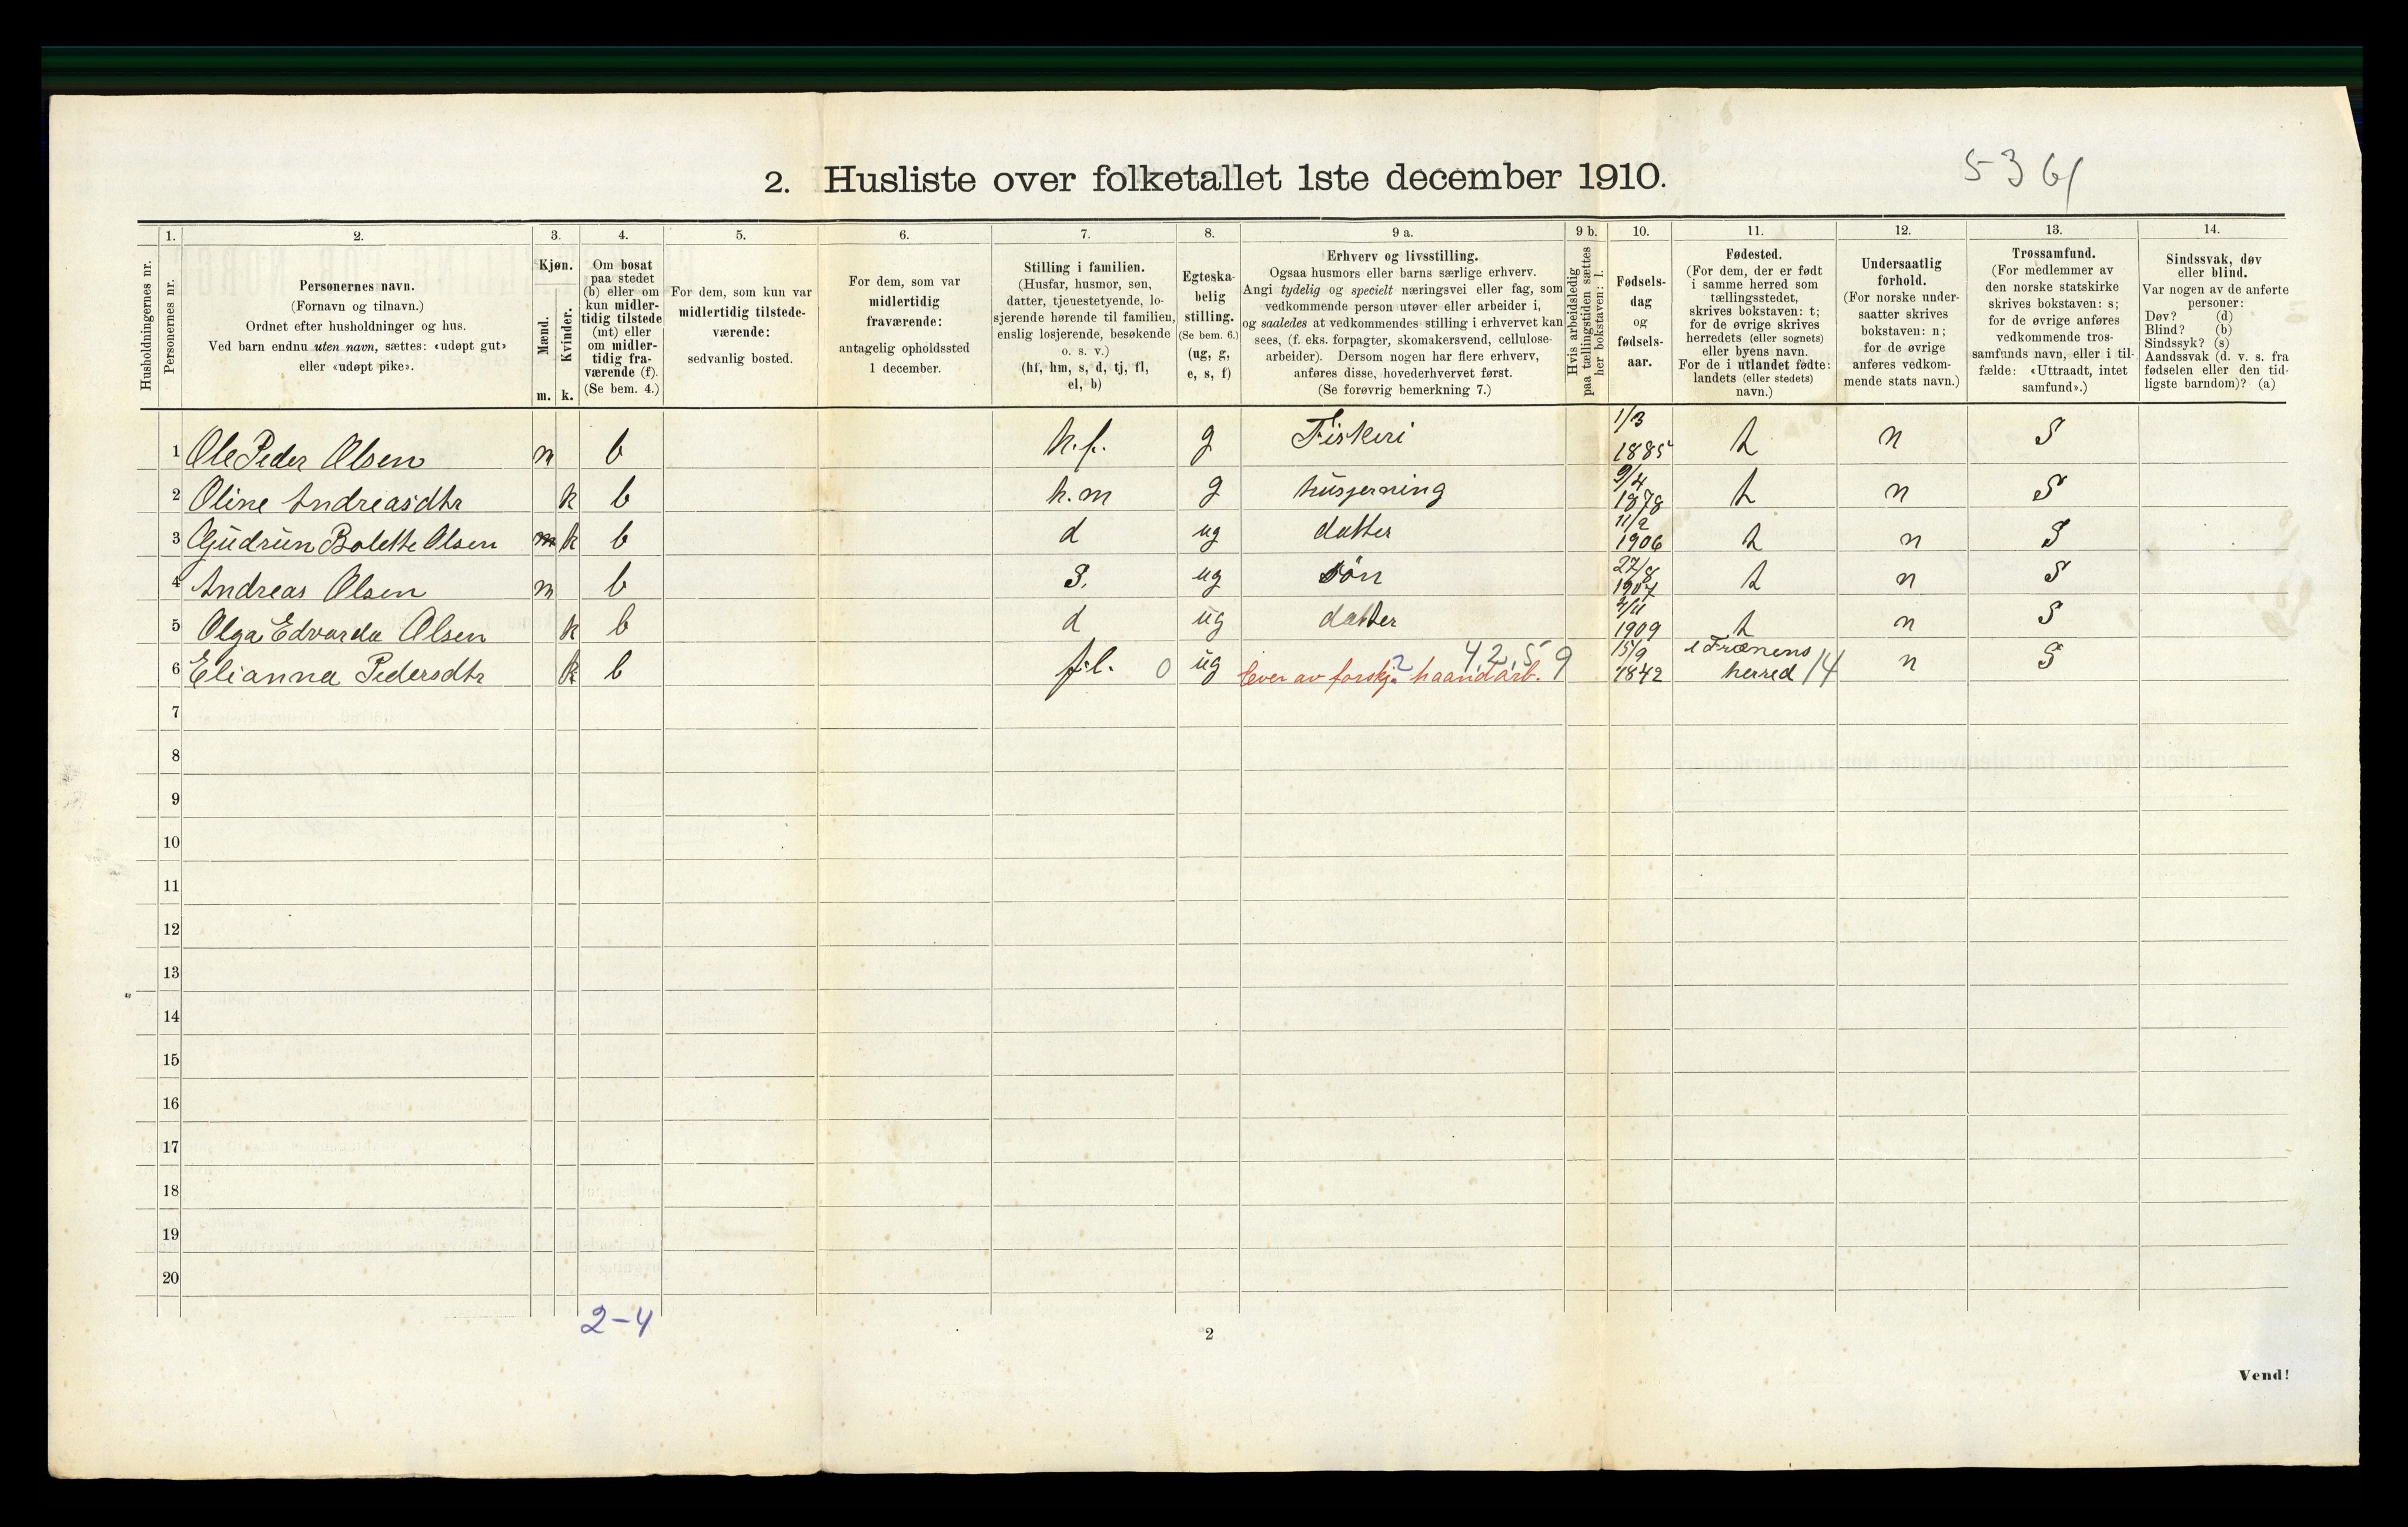 2. Husliste over folketallet 1ste december 1910.
5361
Husholdningernes nr.
1.
Personernes nr.
2.
Personernes navn.
(Fornavn og tilnavn.)
Ordnet efter husholdninger og hus.
Ved barn endnu uten navn, sættes: «udøpt gut»
eller «udøpt pike».
3.
Kjøn.
Mænd.
Kvinder.
m. k.
4.
Om bosat
paa stedet
(b) eller om
kun midler-
tidig tilstede
(mt) eller
om midler-
tidig fra-
værende (f).
(Se bem. 4.)
5.
For dem, som kun var
midlertidig tilstede-
værende:
sedvanlig bosted.
6.
For dem, som var
midlertidig
fraværende:
antagelig opholdssted
1 december.
7.
Stilling i familien.
(Husfar, husmor, søn,
datter, tjenestetyende, lo-
sjerende hørende til familien,
enslig losjerende, besøkende
o. s. v.)
(hf, hm, s, d, tj, fl,
el, b)
8.
Egteska-
belig
stilling.
(Se bem. 6.)
(ug, g,
e, s, f)
9 a.
Erhverv og livsstilling.
Ogsaa husmors eller barns særlige erhverv.
Angi tydelig og specielt næringsvei eller fag, som
vedkommende person utøver eller arbeider i,
og saaledes at vedkommendes stilling i erhvervet kan
sees, (f. eks. forpagter, skomakersvend, cellulose-
arbeider). Dersom nogen har flere erhverv,
anføres disse, hovederhvervet først.
(Se forøvrig bemerkning 7.)
9 b.
Hvis arbeidsledig
paa tællingstiden sættes
her bokstaven: l.
10.
Fødsels-
dag
og
fødsels-
aar.
11.
Fødested.
(For dem, der er født
i samme herred som
tællingsstedet,
skrives bokstaven: t;
for de øvrige skrives
herredets (eller sognets)
eller byens navn.
For de i utlandet fødte:
landets (eller stedets)
navn.)
12.
Undersaatlig
forhold.
(For norske under-
saatter skrives
bokstaven: n;
for de øvrige
anføres vedkom-
mende stats navn.)
13.
Trossamfund.
(For medlemmer av
den norske statskirke
skrives bokstaven: s;
for de øvrige anføres
vedkommende tros-
samfunds navn, eller i til-
fælde: «Uttraadt, intet
samfund».)
14.
Sindssvak, døv
eller blind.
Var nogen av de anførte
personer:
Døv? (d)
Blind? (b)
Sindssyk? (s)
Aandssvak (d. v. s. fra
fødselen eller den tid-
ligste barndom)? (a)
1 Ole Peder Olsen m b h.f. g Fiskeri 1/3 1885 t n S
2 Oline Andreasdtr k b h.m g husjerning 9/4 1878 t n S
3 Gudrun Bolette Olsen m k b d ug datter 11/2 1906 t n S
4 Andreas Olsen m b S. ug sön 27/8 1907 t n S
5 Olga Edvarda Olsen k b d ug datter 4/11 1909 t n S
6 Elianna Pedersdtr k b f.l. 0 ug lever av forskj. ? haandarb. 4,2,5 9 15/9 1842 i Frænens herred 14 n S
7
8
9
10
11
12
13
14
15
16
17
18
19
20
2-4
2
Vend!